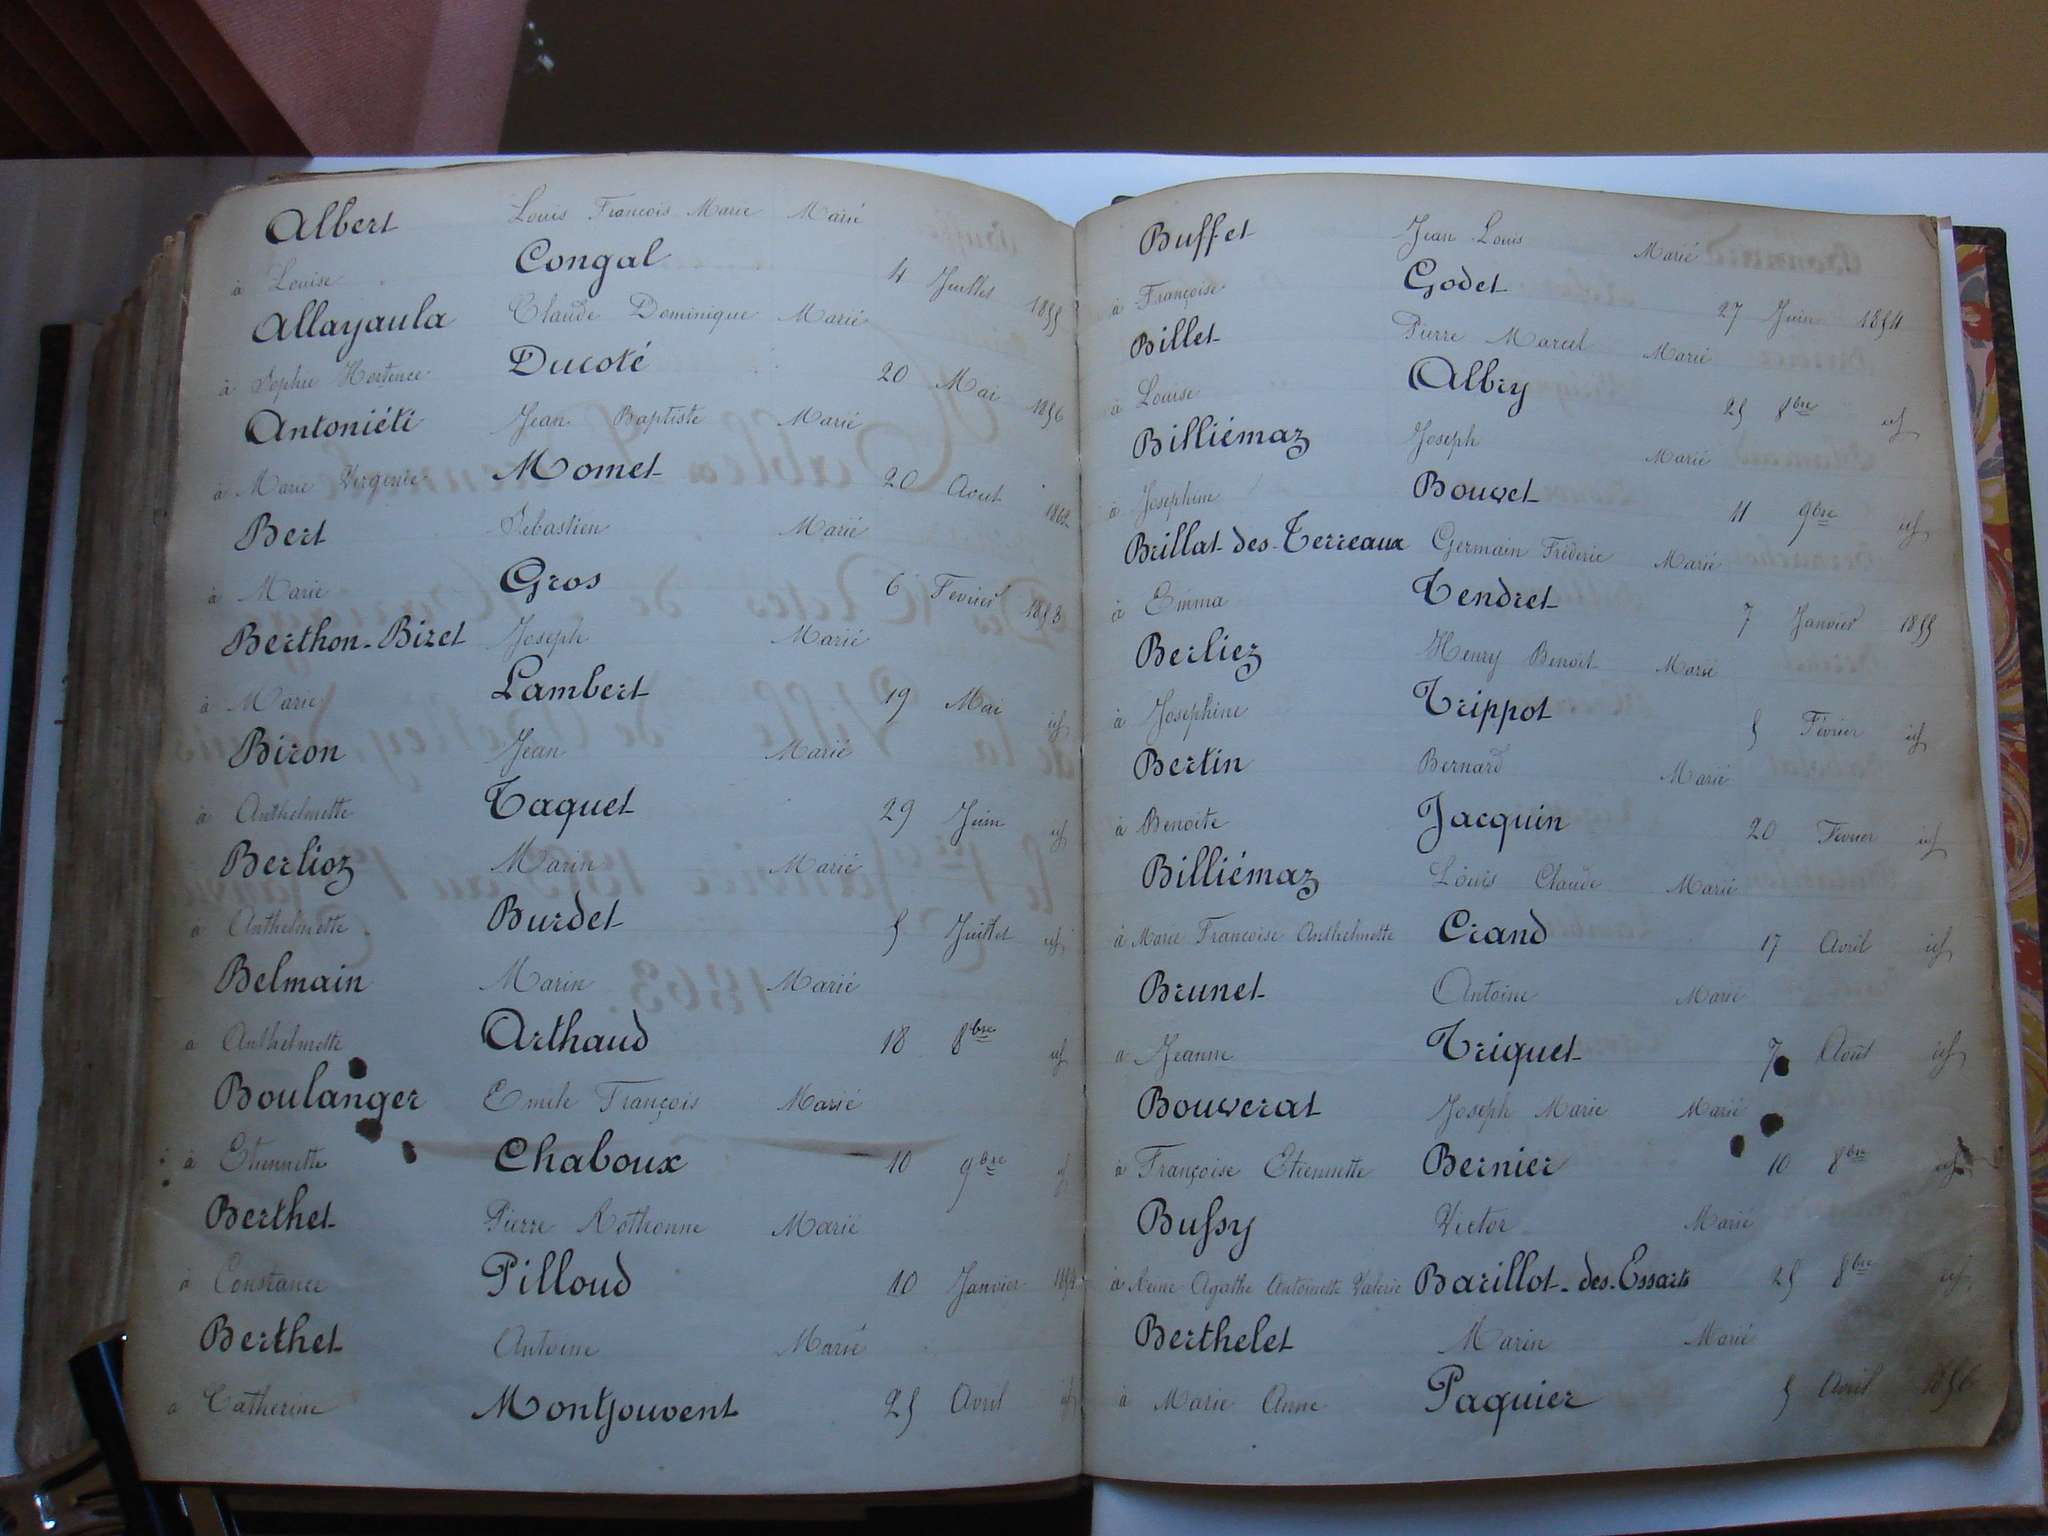 Albert Louis François Marie Marié
à Louise Congal 4 Juillet 1855
Allayaula Claude Dominique Marié
à Sophie Hortence Ducoté 20 Mai 1856
Antoniéti Jean Baptiste Marié
à Marie Virgenie Momet 20 Aout 1862
Bert Sébastien Marié
à Marie Gros 6 Fevrier 1853
Berthon-Bizet Joseph Marié
à Marie Lambert 19 Mai id
Biron Jean Marié
à Anthelmette Taquet 29 Juin id
Berlioz Marin Marié
à Anthelmette Burdet 5 Juillet id
Belmain Marin Marié
à Anthelmette Arthaud 18 8bre id
Boulanger Emile François Marié
à Etiennette Chaboux 10 9bre id
Berthet Pierre Marié
à Constance Pilloud 10 Janvier 1854
Berthet Antoine Marié
à Catherine Montjouvent 25 Avril id
Buffet Jean Louis Marié
à Françoise Godet 27 Juin 1854
Billet Pierre Marcel Marié
à Louise Albry 25 8bre id
Billiémaz Joseph Marié
à Josephine Bouvet 11 9bre id
Brillat-des-Terreaux Germain Fréderic Marié
à Emma Tendret 7 Janvier 1855
Berliez Henry Benoit Marié
à Josephine Trippot 5 Février id
Bertin Bernard Marié
à Benoite Jacquin 20 Février id
Billiémaz Louis Claude Marié
à Marie Francoise Anthelmette Crand 17 Avril id
Brunet Antoine Marié
a Jeanne Triquet 7 Août id
Bouverat Joseph Marie Marié
à Françoise Etiennette Bernier 10 8bre id
Bussy Victor Marié
à Reine Agathe Antoinette Valerie Barillot-des-Essarts 25 8bre id
Berthelet Marin Marié
à Marie Anne Paquier 5 Avril 1856